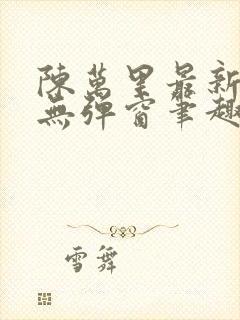 陳萬里最新
無彈窗筆趣
雪舞